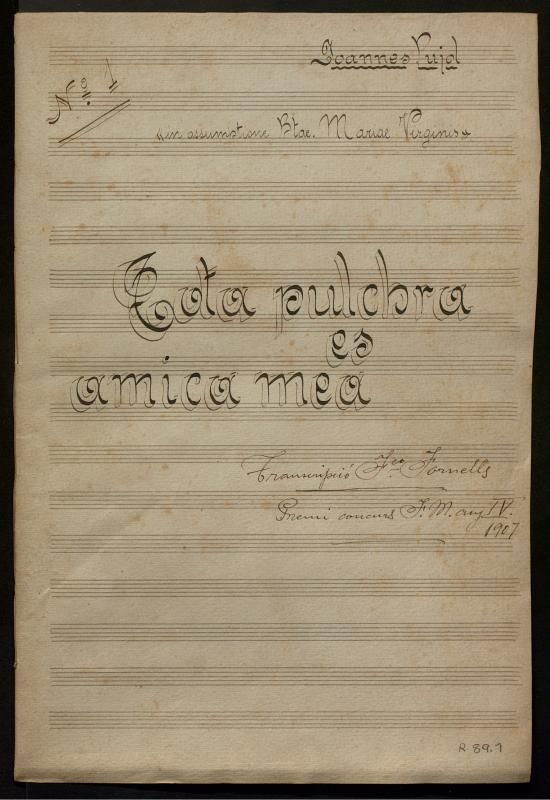 Joannes Pujol
Nº. 1
«in assumptione Btae. Mariae Virginis»
Tota pulchra
es
amica mea
Transcripció Fco Fornells
Premi concurs F. M. any IV.
1907
R 89.1